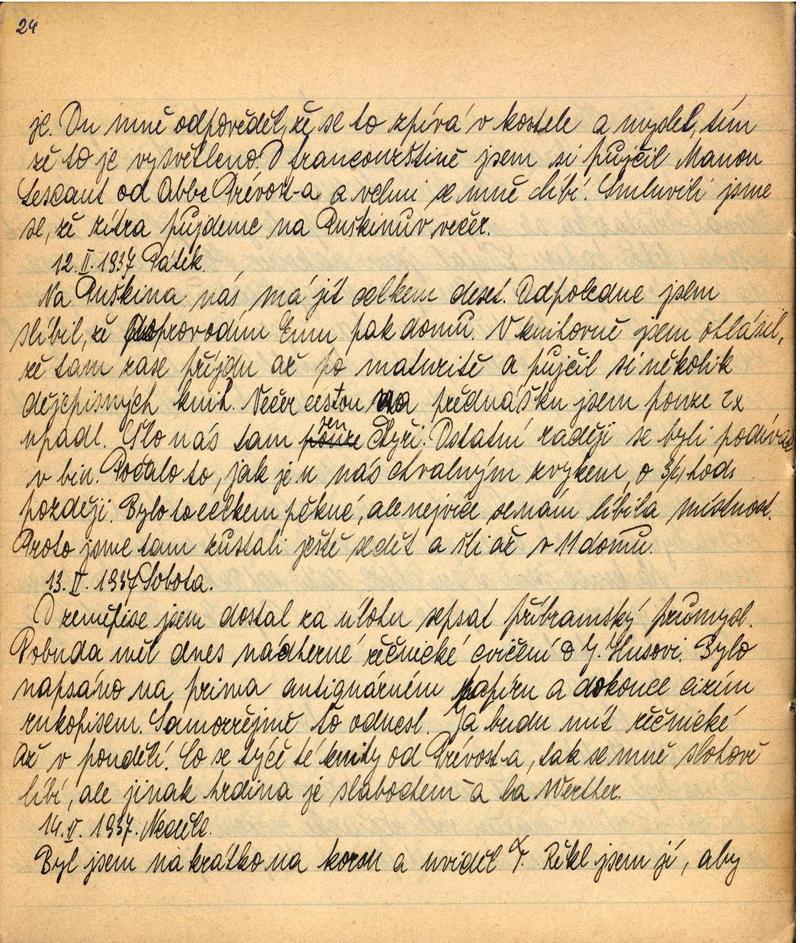 24
je. On mně odpověděl, že se to zpívá v kostele a myslel, tím
že to je vysvětleno. O francourštině jsem si půjčil Manon
Lescaut od Abbe Prévost-a a velmi se mně líbí. Smluvili jsme
se, že zítra půjdeme na Puškinův večer.
12. II. 1937 Pátek.
Na Puškina nás má jít celkem deset. Odpoledne jsem
slíbil, že doprovodím Emu pak domů. V knihovně jsem ohlásil,
že tam zase přijdu až po maturitě a půjčil si několik
dějepisných knih. Večer cestou na přednášku jsem pouze 2x
upadl. Šlo nás tam pouze jen čtyři. Ostatní raději se byli podívat
v biu. Počalo to, jak je u nás chvalným zvykem, o 3/4 hod.
později. Bylo to celkem pěkné, ale nejvíce se nám líbila místnost.
Proto jsme tam zůstali ještě sedět a šli až v 11 domů.
13. II. 1937 Sobota.
O zeměpise jsem dostal za úlohu sepsat příbramský průmysl.
Pobuda měl dnes nádherné řečnické cvičení o J. Husovi. Bylo
napsáno na prima antiquárném papíru a dokonce cizím
rukopisem. Samozřejmě to odnesl. Já budu mít řečnické
až v pondělí. Co se týče té knihy od Prévost-a, tak se mně slohově
líbí, ale jinak hrdina je slabochem a la Werther.
14. II. 1937. Neděle.
Byl jsem nakrátko na korsu a uviděl J. Řekl jsem jí, aby